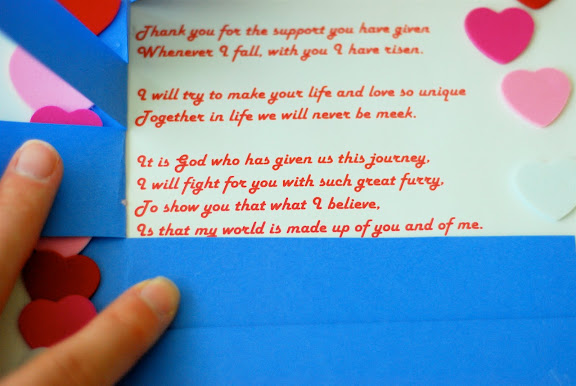 Thank you for the support you have given
Whenever I fall, with you I have risen.
I will try to make your life and love so unique
Together in life we will never be meek.
It is God who has given us this journey,
I will fight for you with such great furry,
To show you that what I believe,
Is that my world is made up of you and of me.